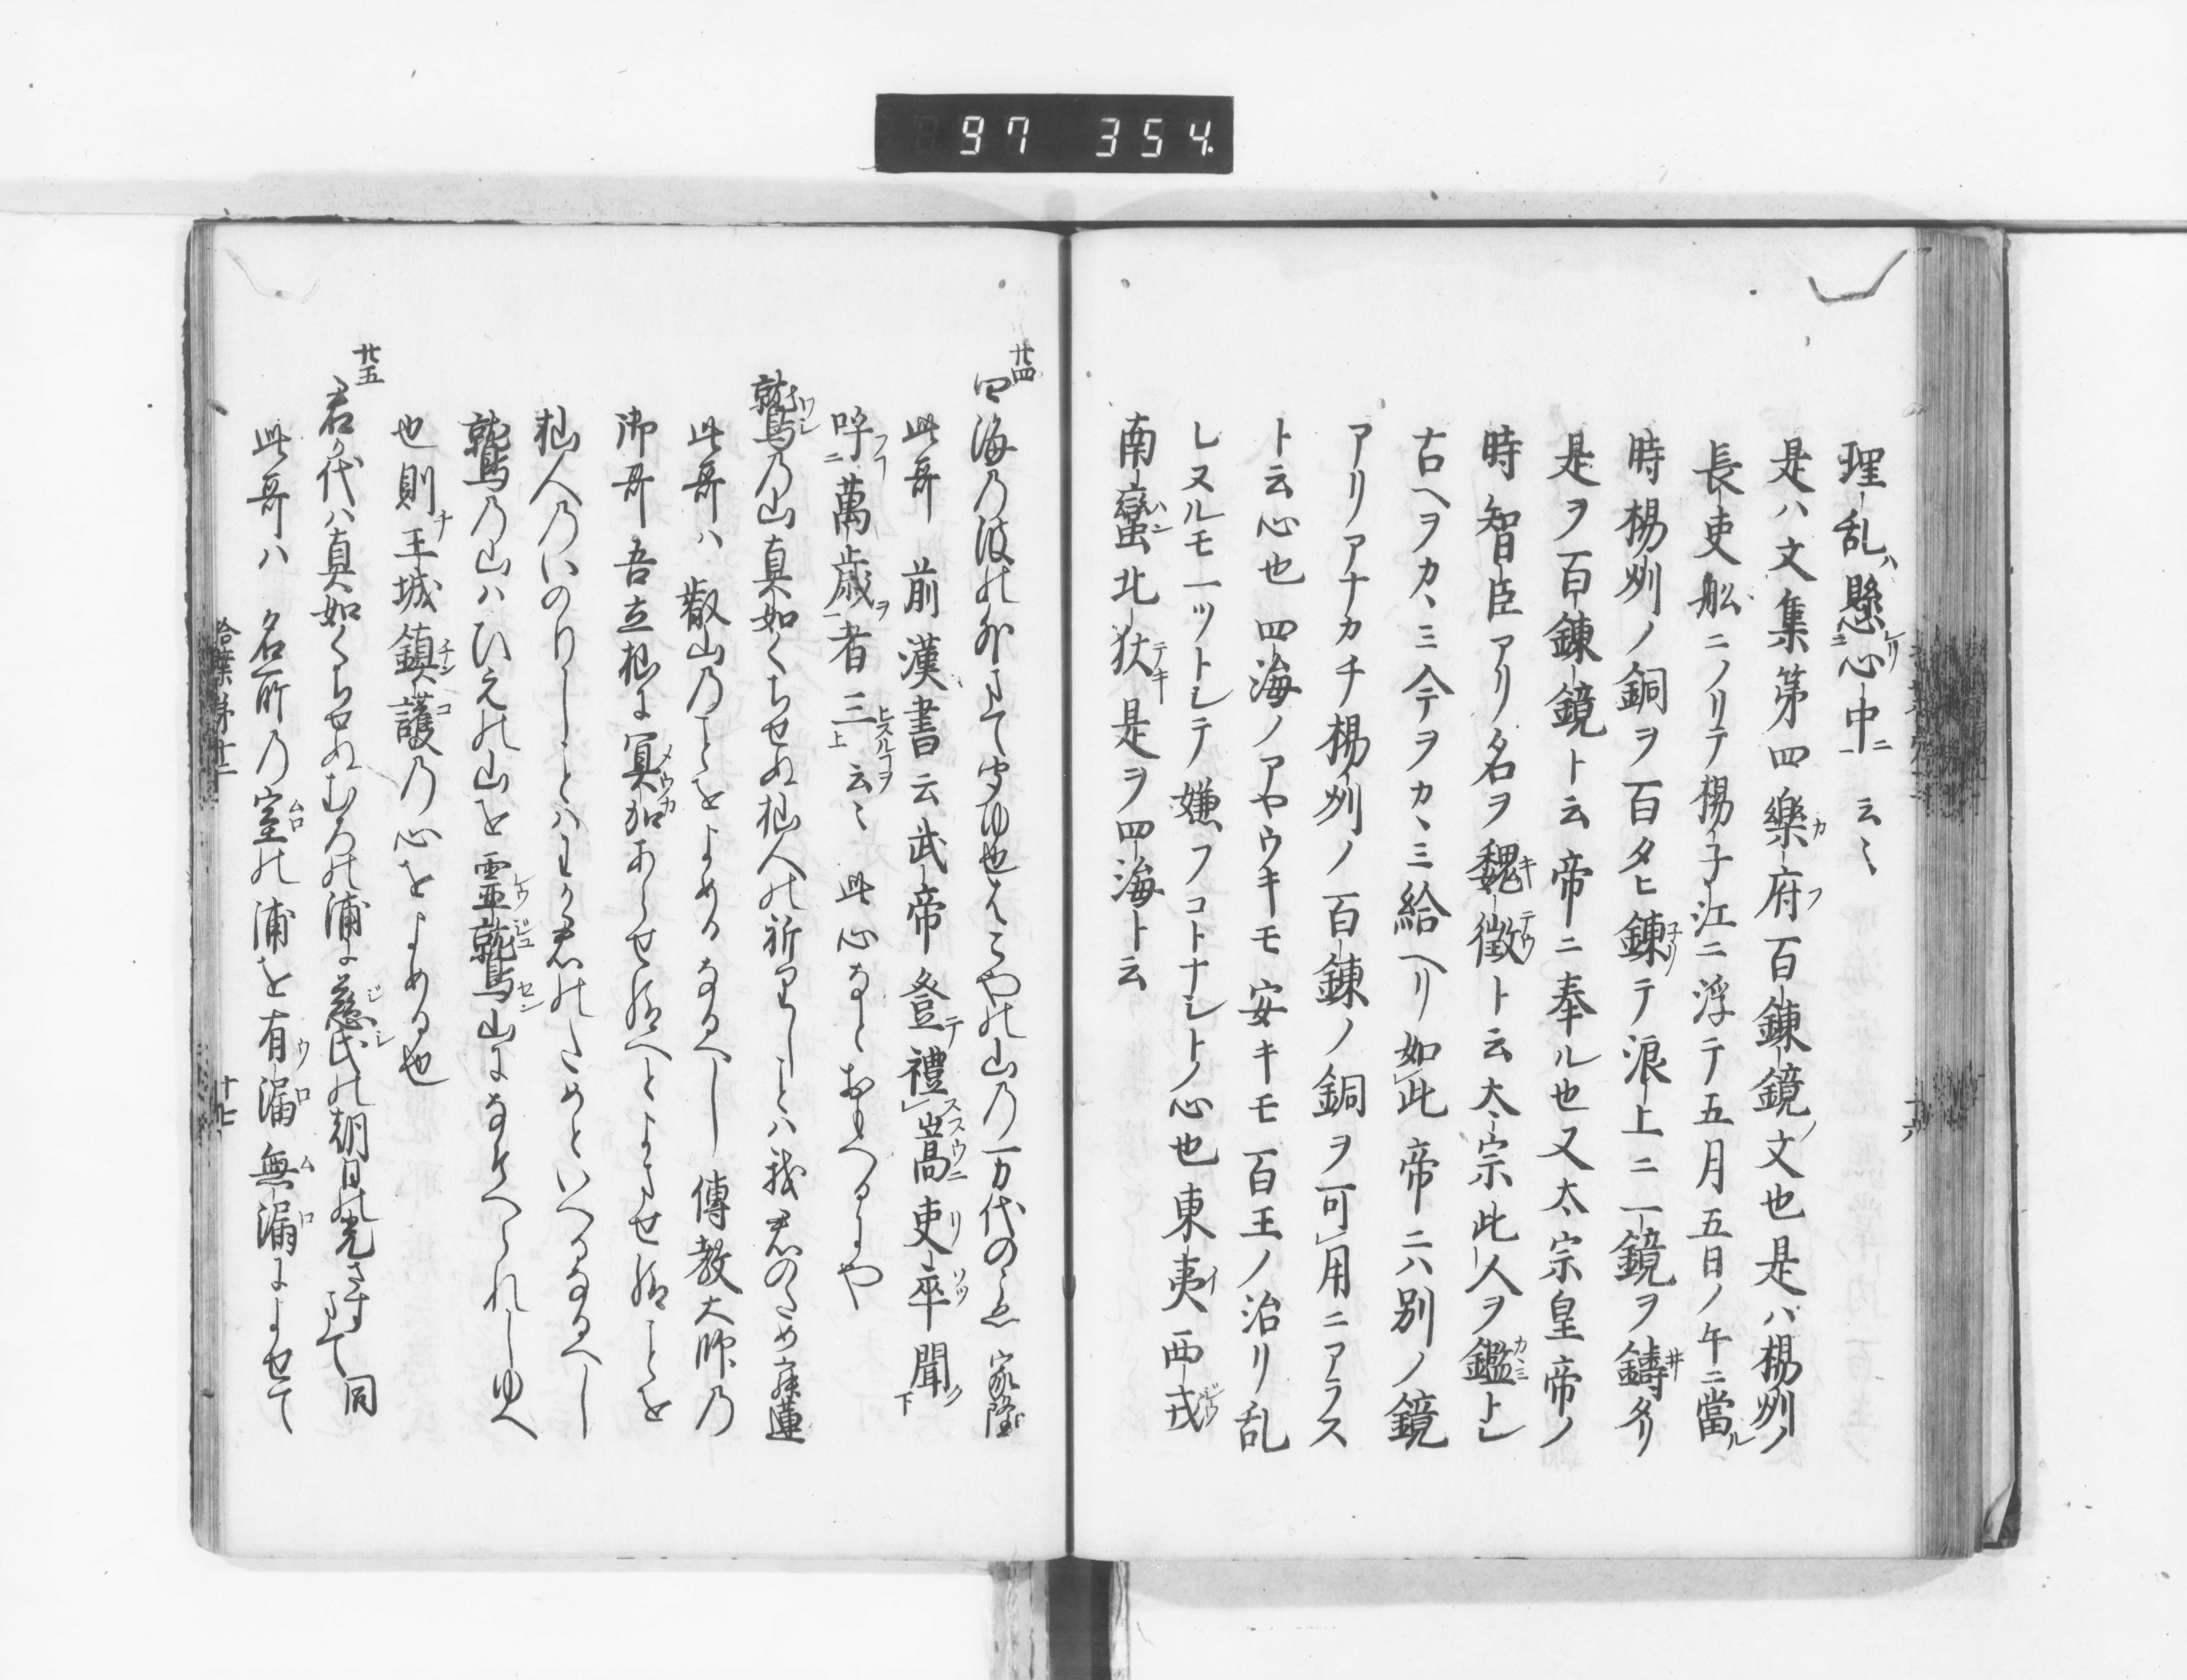 97 354
理乱ハ懸ケリ心中ニ 云〻
是ハ文集第四樂府百錬鏡ノ文也是ハ楊州ノ
長吏舩ニノリテ楊子江ニ浮テ五月五日ノ午ニ當ル
時楊州ノ銅ヲ百タヒ錬テ浪上ニ一鏡ヲ鑄タリ
是ヲ百錬鏡ト云帝ニ奉ル也又太宗皇帝ノ
時智臣アリ名ヲ魏徴ト云太宗此人ヲ鑑トシ
古ヘヲカヽミ今ヲカヽミ給ヘリ如此帝ニハ別ノ鏡
アリアナカチ楊州ノ百錬ノ銅ヲ可用ニアラス
ト云心也四海ノアヤウキモ安キモ百王ノ治リ乱
レヌルモ一ツトシテ嫌フコトナシトノ心也東夷西戎
南蛮北狄是ヲ四海ト云
廿四
四海乃波の外まてきゆ也はこやの山乃万代のこゑ 家隆
此哥 前漢書云武帝登禮嵩吏卒聞
呼萬歳者三云〻 此心なとおもへるにや
鷲乃山真如くちせぬ杣人の祈りしことハ我君のため 寂蓮
此哥ハ 叡山乃ことをよめるなるへし 傳教大師乃
御哥 吾立杣に冥加あらせ給へとよませ給ことを
杣人乃いのりしことハわか君のためといへるなるへし
鷲乃山ハひえの山を霊鷲山になそへられしゆへ
也則王城鎮護乃心をよめる也
廿五
君か代ハ真如くちせぬむろの浦に慈氏の朝日の光さすまて 同
此哥ハ 名所乃室の浦を有漏無漏によせて
拾葉第十二 十七